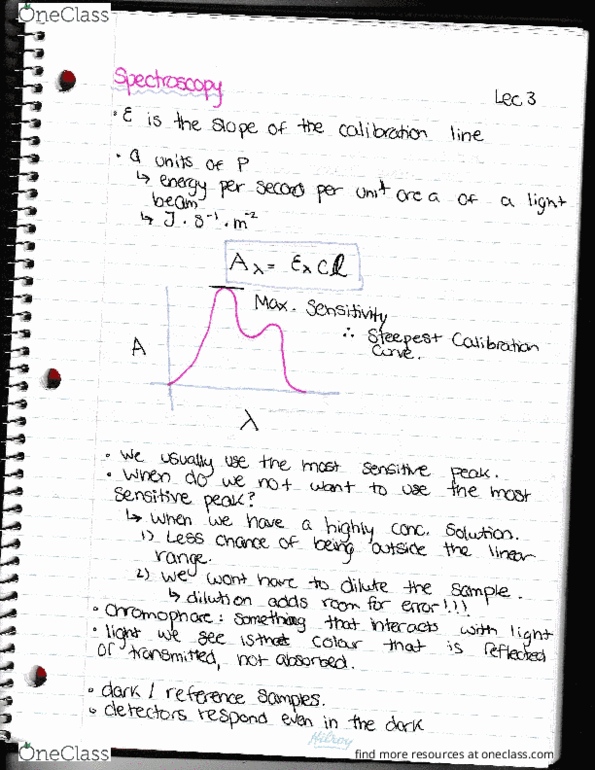 OneClass
Spectroscopy
Lec 3
• ε is the slope of the calibration line
• Q units of P
↳ energy per second per unit area of a light
beam
↳ J · s⁻¹ · m⁻²
Aλ = ελ c l
Max. Sensitivity
∴ Steepest Calibration
Curve.
A
λ
• we usually use the most sensitive peak.
• when do we not want to use the most
sensitive peak?
↳ when we have a highly conc. solution.
1) Less chance of being outside the linear
range.
2) we wont have to dilute the sample.
↳ dilution adds room for error!!!
• chromophore: something that interacts with light
• light we see is the color that is reflected
or transmitted, not absorbed.
• dark / reference samples.
• detectors respond even in the dark
Hilroy
OneClass
find more resources at oneclass.com